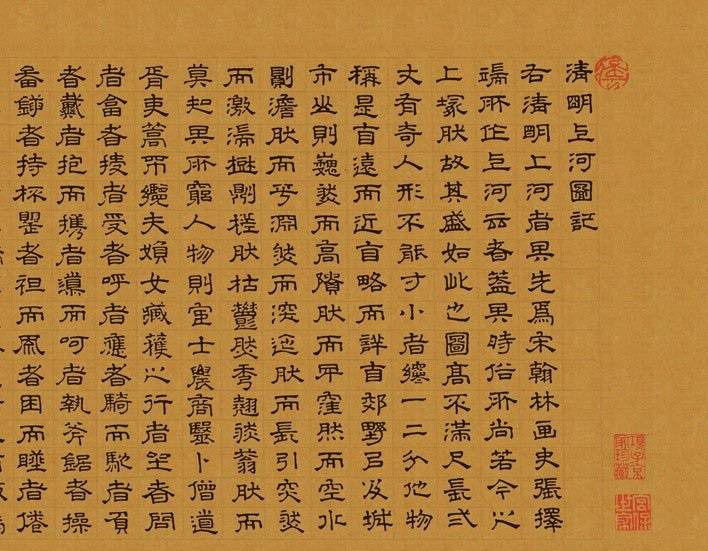 清明上河圖記
右清明上河者其先爲宋翰林画史張擇
端所作上河云者蓋其時俗所尚若今之
上冢肰故其盛如此也圖高不滿尺長弍
丈有奇人形不能寸小者纔一二分他物
稱是自遠而近自略而詳自郊野以及城
市山則巍然而高隤肰而平窪然而空水
則澹肰而平淵然而深迤肰而長引突然
而激湍樹則槎肰枯鬱然秀翹然蓊肰而
莫知其所窮人物則官士農商醫卜僧道
胥吏篙師纜夫婦女臧獲之行者坐者問
者畣者授者受者呼者應者騎而馳者負
者戴者抱而攜者導而呵者執斧鋸者操
畚鍤者持杯罌者袒而風者困而睡者倦
項子京
家珍藏